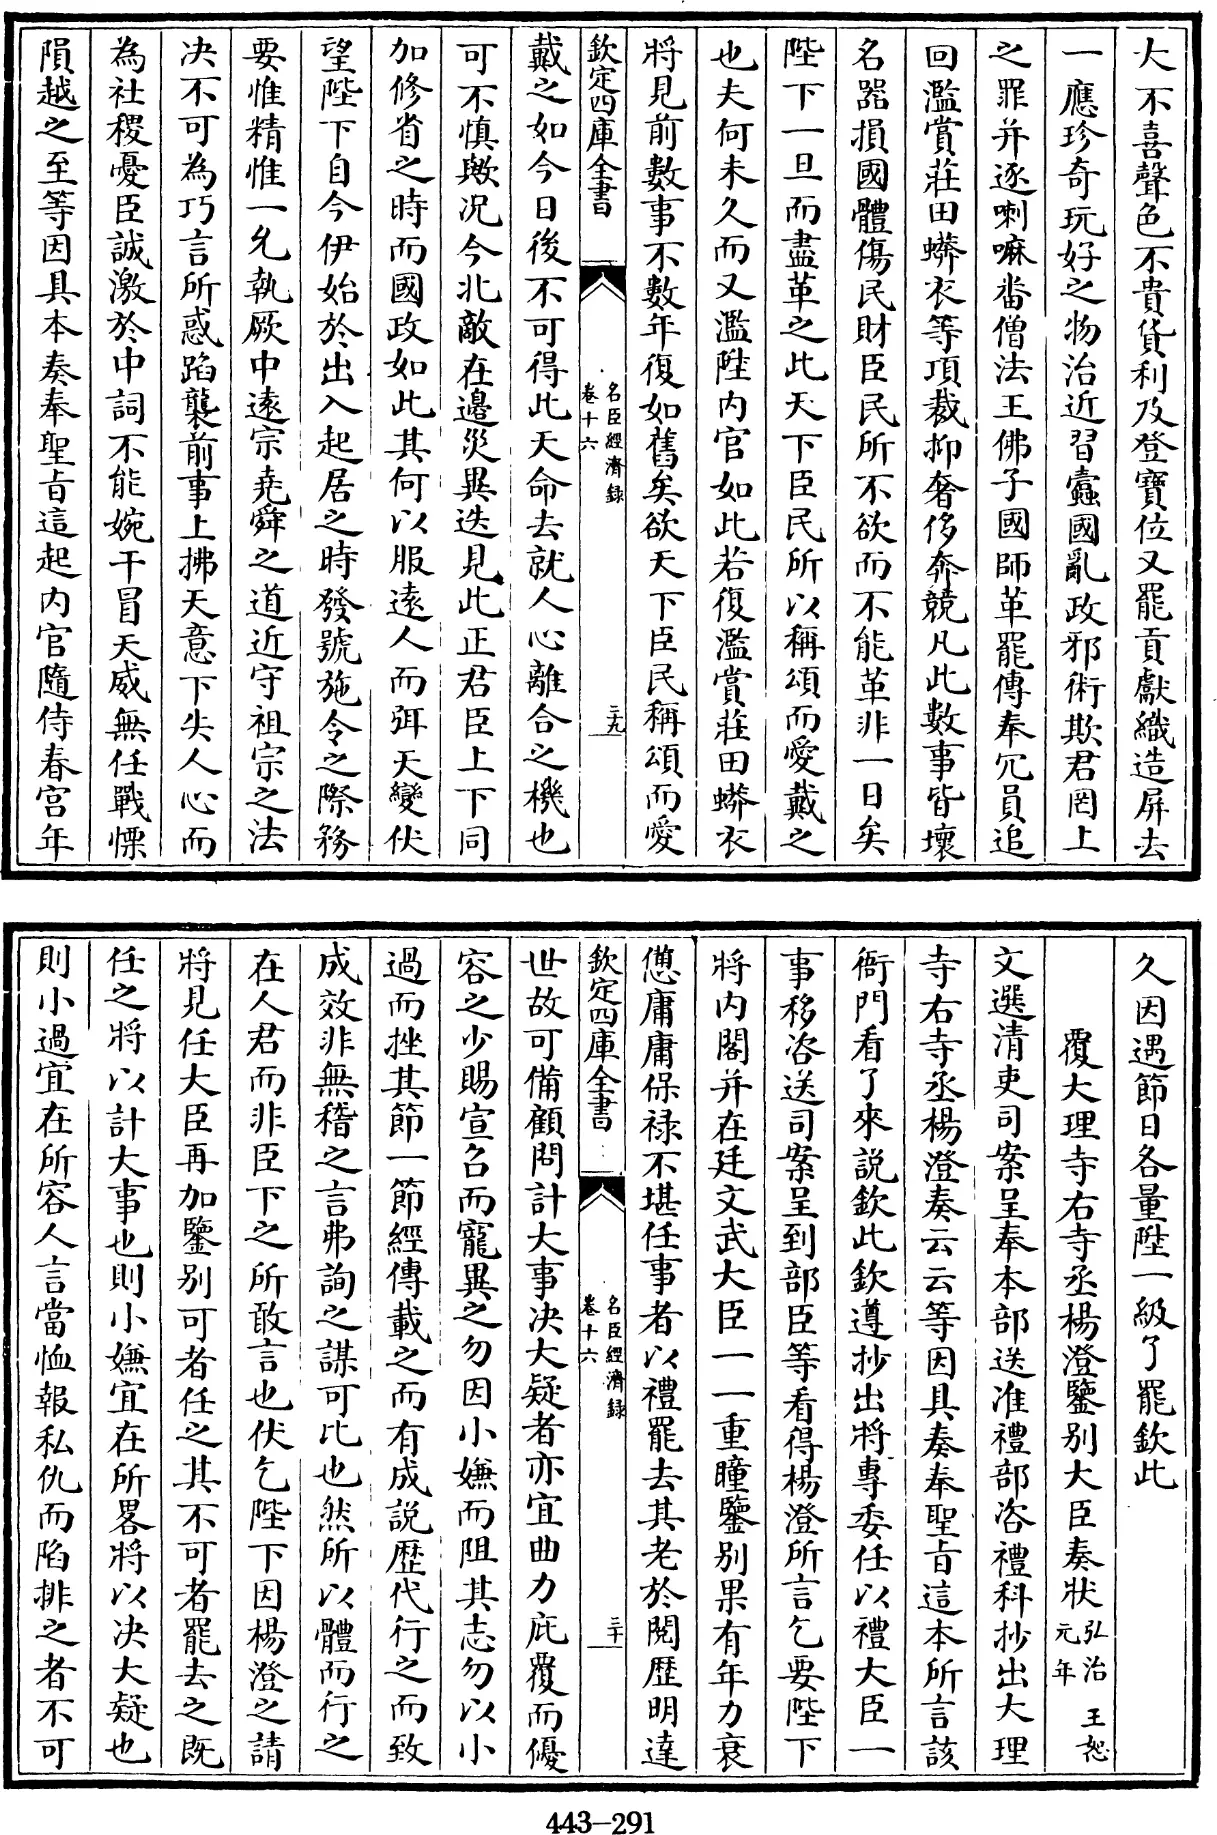 大不喜聲色不貴貨利及登寶位又罷貢獻織造屏去
一應珍奇玩好之物治近習蠹國亂政邪術欺君罔上
之罪并逐喇嘛畨僧法王佛子國師革罷傳奉冗員追
回濫賞莊田蟒衣等項裁抑奢侈奔競凡此數事皆壞
名器損國體傷民財臣民所不欲而不能革非一日矣
陛下一旦而盡革之此天下臣民所以稱頌而愛戴之
也夫何未久而又濫陞内官如此若復濫賞莊田蟒衣
將見前數事不數年復如舊矣欲天下臣民稱頌而愛
欽定四庫全書
名臣經濟錄
卷十六
三九
戴之如今日後不可得此天命去就人心離合之機也
可不慎歟况今北敵在邉災異迭見此正君臣上下同
加修省之時而國政如此其何以服逺人而弭天變伏
望陛下自今伊始於出入起居之時發號施令之際務
要惟精惟一允執厥中逺宗堯舜之道近守祖宗之法
决不可為巧言所惑蹈襲前事上拂天意下失人心而
為社稷憂臣誠激於中詞不能婉干冒天威無任戰慄
隕越之至等因具本奏奉聖㫖這起内官隨侍春宫年
久因遇節日各量陞一級了罷欽此
覆大理寺右寺丞楊澄鑒别大臣奏狀 弘治元年 王恕
文選清吏司案呈奉本部送准禮部咨禮科抄出大理
寺右寺丞楊澄奏云云等因具奏奉聖㫖這本所言該
衙門看了來説欽此欽遵抄出將專委任以禮大臣一
事移咨送司案呈到部臣等看得楊澄所言乞要陛下
將内閣并在廷文武大臣一一重瞳鑒别果有年力衰
憊庸庸保禄不堪任事者以禮罷去其老於閱歴明達
欽定四庫全書
名臣經濟錄
卷十六
三十
世故可備顧問計大事决大疑者亦宜曲力庇覆而優
容之少賜宣召而寵異之勿因小嫌而阻其志勿以小
過而挫其節一節經傳載之而有成説歴代行之而致
成效非無稽之言弗詢之謀可比也然所以體而行之
在人君而非臣下之所敢言也伏乞陛下因楊澄之請
將見任大臣再加鑒别可者任之其不可者罷去之既
任之將以計大事也則小嫌宜在所畧將以决大疑也
則小過宜在所容人言當恤報私仇而陷排之者不可
443-291